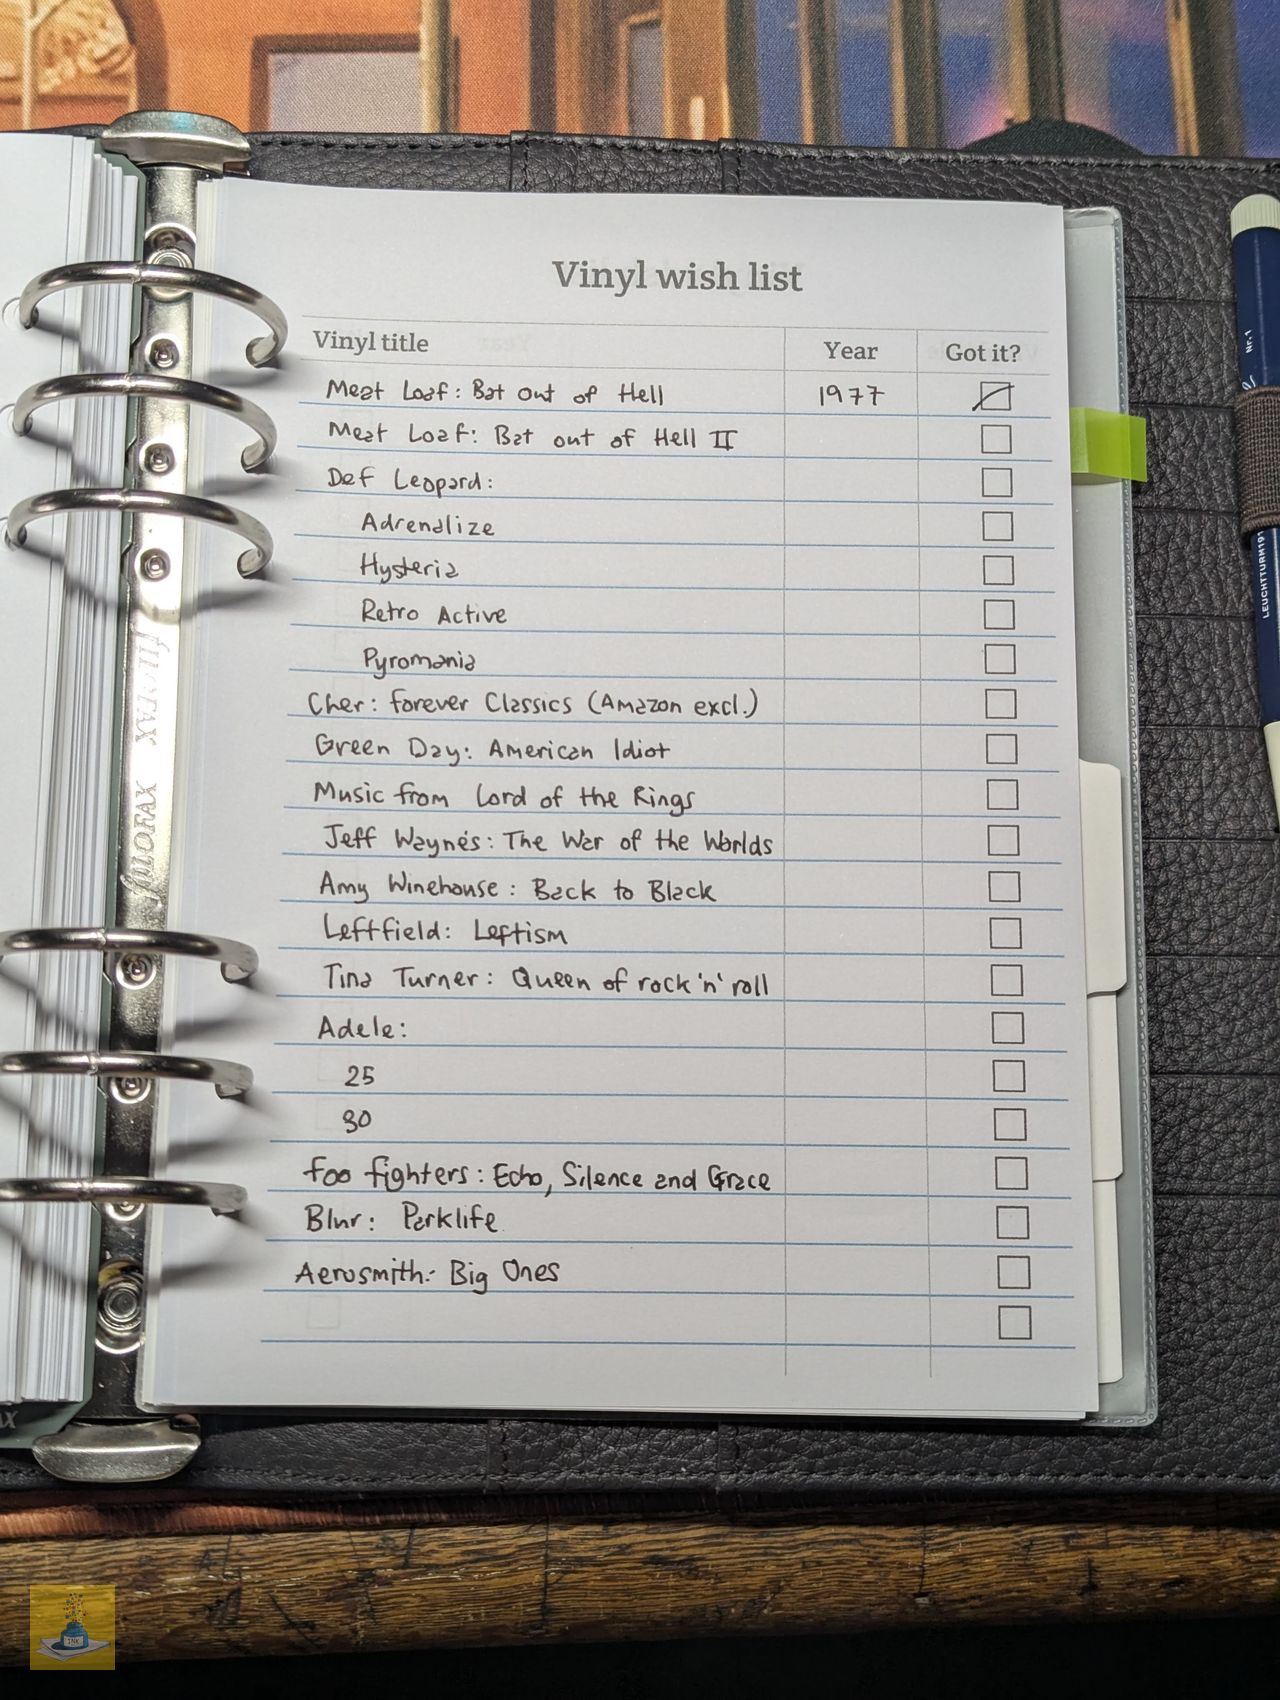 Vinyl wish list
Vinyl title Year Got it?
Meat Loaf: Bat out of Hell 1977
Meat Loaf: Bat out of Hell II
Def Leopard:
Adrenalize
Hysteria
Retro Active
Pyromania
Cher: Forever Classics (Amazon excl.)
Green Day: American Idiot
Music from Lord of the Rings
Jeff Wayne's: The War of the Worlds
Amy Winehouse: Back to Black
Leftfield: Leftism
Tina Turner: Queen of rock 'n' roll
Adele:
25
30
Foo fighters: Echo, Silence and Grace
Blur: Parklife
Aerosmith: Big Ones
filofax
filofax
Nr. 1
LEUCHTTURM191
AX
INK